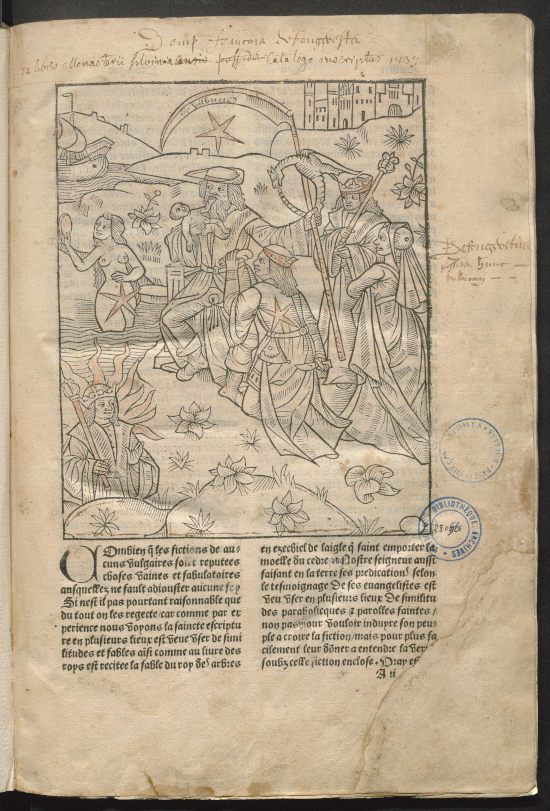 Saturnus
OMbien q̃ les fictions de au-
cuns vulgaires sont reputees
choses vaines et fabulatoires
ausquelles ne faule adiouster aucune foy
Si nest il pas pourtant raisonnable que
du tout on les regecte car comme par ex
perience nous voyons la saincte escriptu
re en plusieurs lieux est veue vser de simi
litudes et fables aisi comme au liure des
roys est recitee la fable du roy des arbres
en ezechiel de laigle q̃ faint emporter la
moelle du cedre. Nostre seigneur aussi
faisant en la terre ses predications selon
le tesmoignage de ses euangelistes est
veu vser en plusieurs lieux de similitu
des paraboliques & parolles faintes /
non pas pour vouloir induyre son peu-
ple a croire la fiction / mais pour plus fa
cilement leur dõner a entendre la veri
soubz celle fiction enclose. Vray est
A ii
BIBLIOTHÈQUE
ARCHIVES